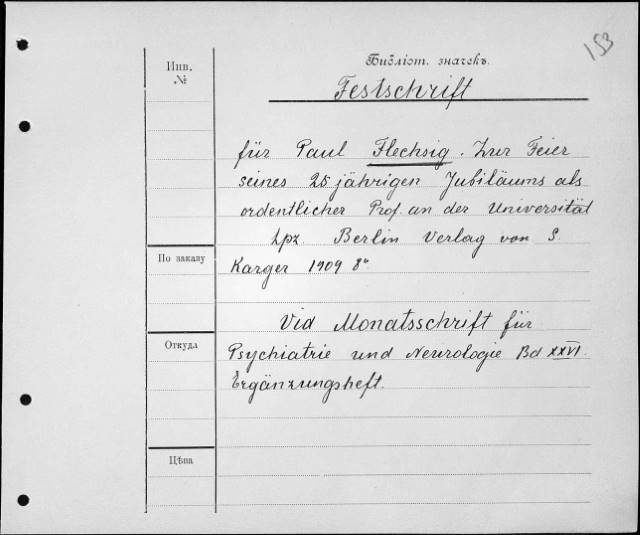 153
Инв.
№
Библіот. значекъ.
Festschrift
für Paul Flechsig. Zur Feier
seines 25 jährigen Jubiläums als
ordentlicher Prof. an der Universität
Lpz. Berlin Verlag von S.
Karger 1909 8°
По заказу
Vid Monatsschrift für
Откуда
Psychiatrie und Neurologie Bd XXVI.
Ergänzungsheft.
Цѣна